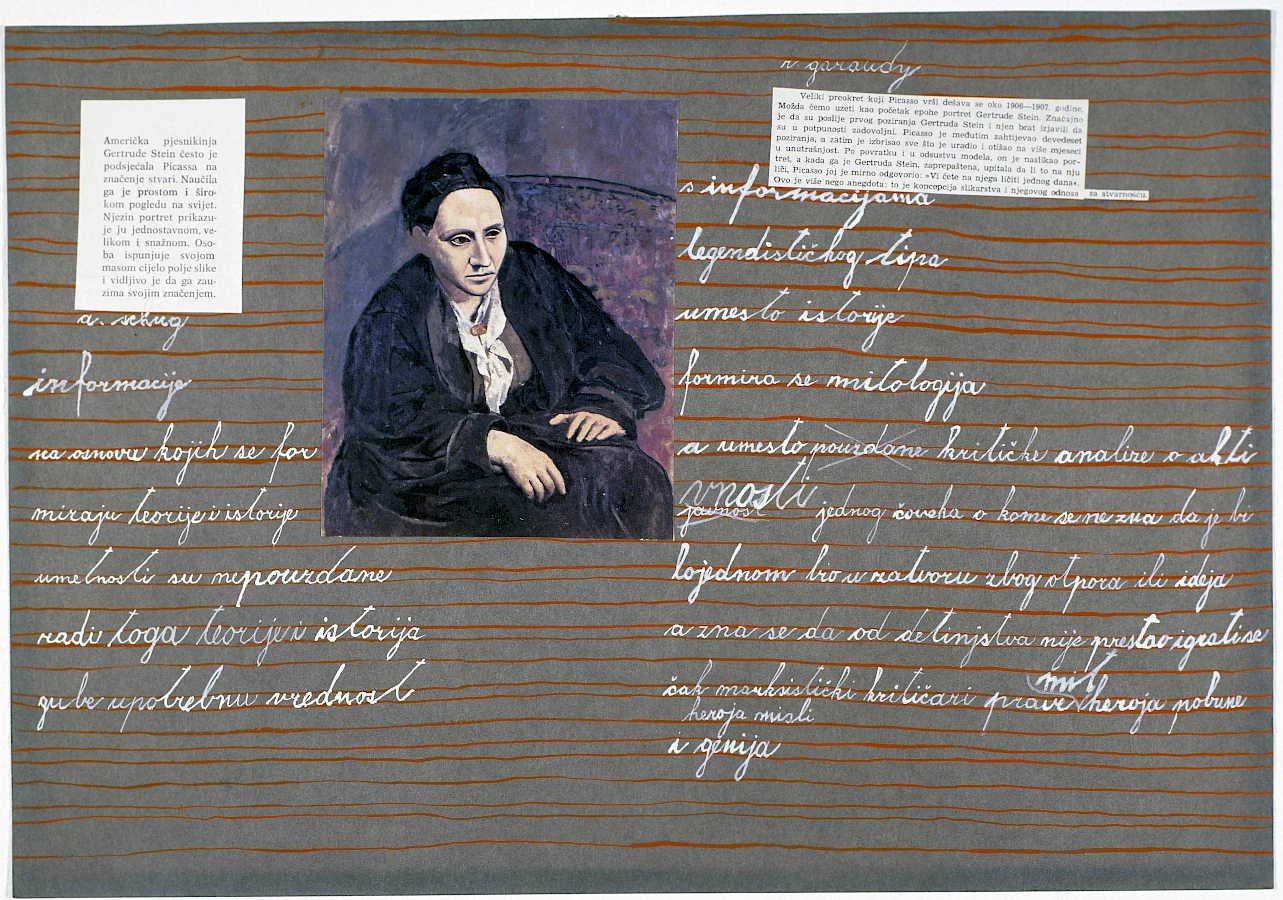 Američka pjesnikinja
Gertrude Stein često je
podsjećala Picassa na
značenje stvari. Naučila
ga je prostom i širo-
kom pogledu na svijet.
Njezin portret prikazu-
je ju jednostavnom, ve-
likom i snažnom. Oso-
ba ispunjuje svojom
masom cijelo polje slike
i vidljivo je da ga zau-
zima svojim značenjem.
a. schug
informacije
na osnovu kojih se for
miraju teorije i istorije
umetnosti su nepouzdane
radi toga teorije i istorija
gube upotrebnu vrednost
r. garaudy
Veliki preokret koji Picasso vrši dešava se oko 1906—1907. godine.
Možda ćemo uzeti kao početak epohe portret Gertrude Stein. Značajno
je da su poslije prvog poziranja Gertruda Stein i njen brat izjavili da
su u potpunosti zadovoljni. Picasso je međutim zahtijevao devedeset
poziranja, a zatim je izbrisao sve što je uradio i otišao na više mjeseci
u unutrašnjost. Po povratku i u odsustvu modela, on je naslikao por-
tret, a kada ga je Gertruda Stein, zaprepaštena, upitala da li to na nju
liči, Picasso joj je mirno odgovorio: »Vi ćete na njega ličiti jednog dana«.
Ovo je više nego anegdota; to je koncepcija slikarstva i njegovog odnosa
sa stvarnošću.
s informacijama
legendističkog tipa
umesto istorije
formira se mitologija
a umesto pouzdane kritičke analize o akti
vnosti
javnost jednog čoveka o kome se ne zna da je bi
lo jednom bio u zatvoru zbog otpora ili ideja
a zna se da od detinjstva nije prestao igrati se
mit
čak marksistički kritičari prave heroja pobune
heroja misli
i genija